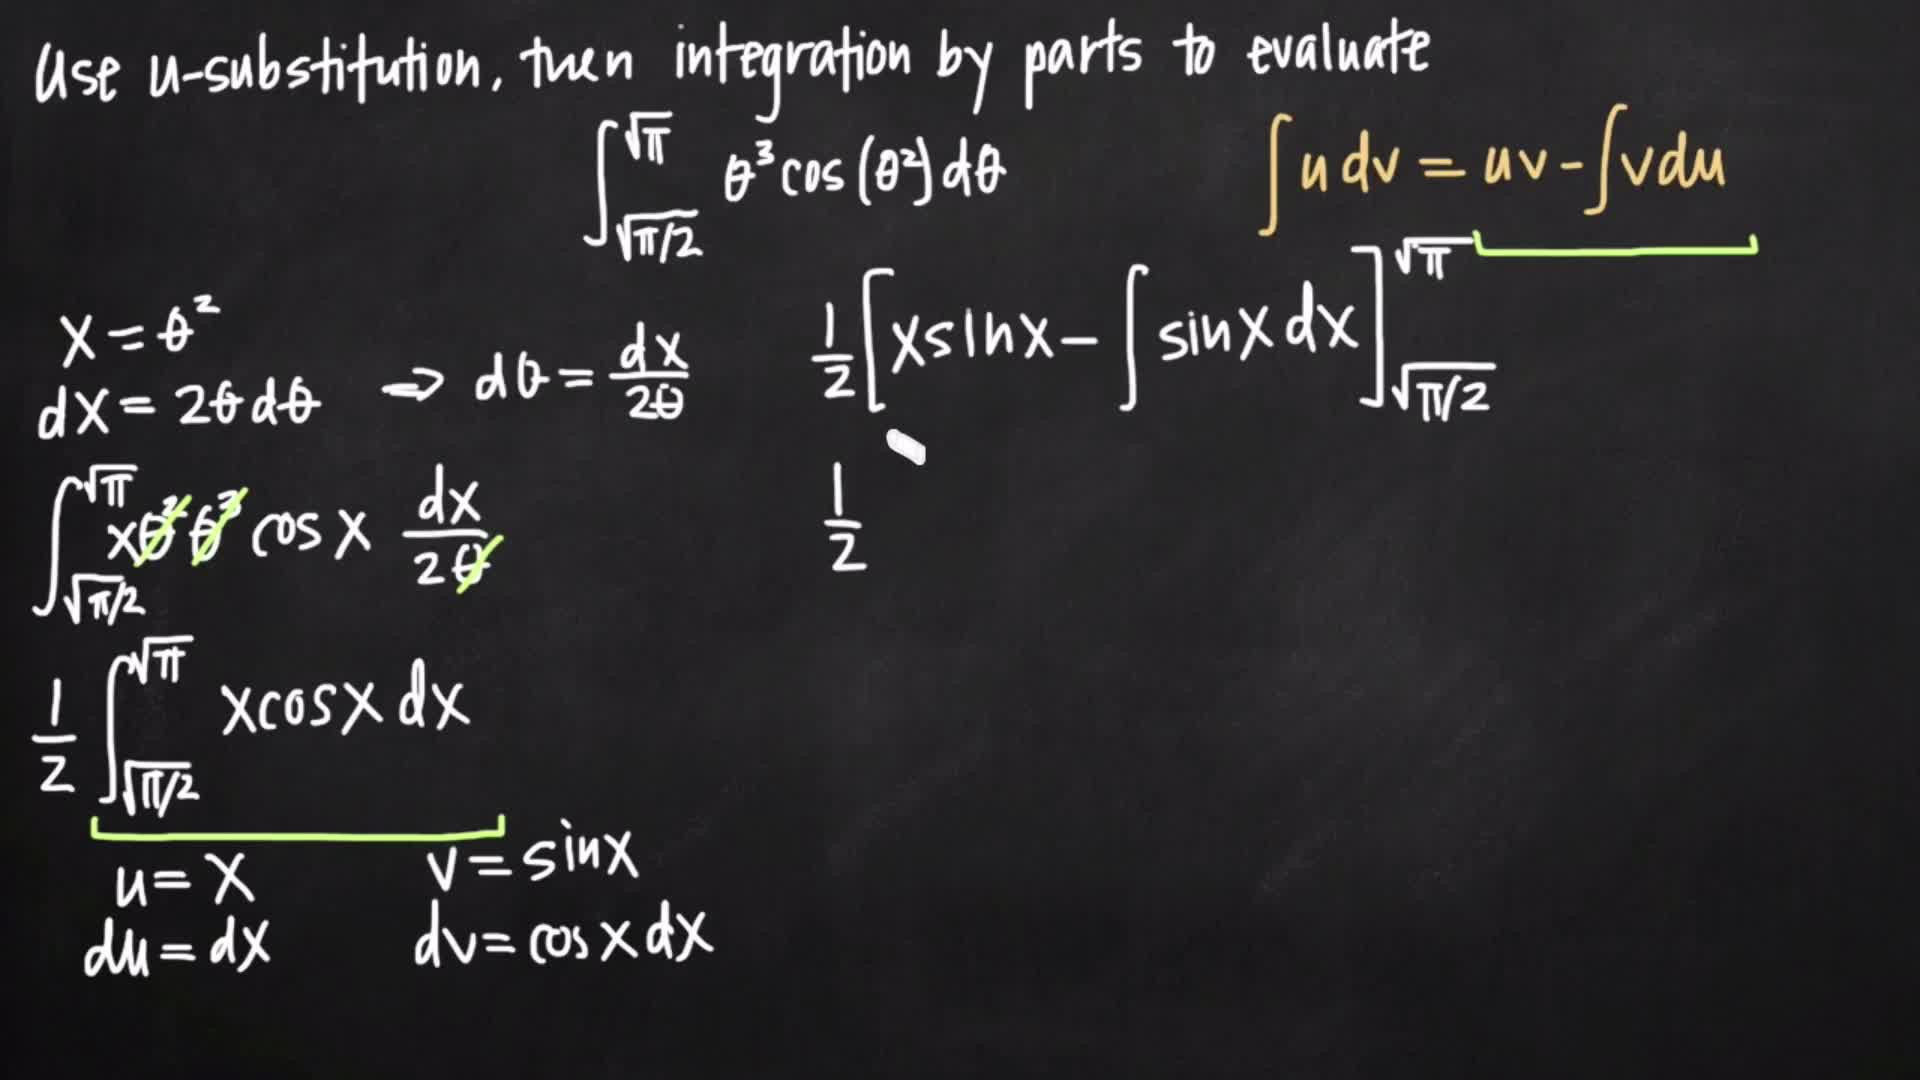 Use u-substitution, then integration by parts to evaluate
∫_{√π/2}^{√π} θ³cos(θ²)dθ
∫u dv = uv - ∫vdu
x = θ²
dx = 2θdθ ⇒ dθ = dx/2θ
∫_{√π/2}^{√π} xθ²θ³ cos x dx/2θ
1/2 ∫_{√π/2}^{√π} xcosx dx
u = x v = sinx
du = dx dv = cos x dx
1/2 [xsinx - ∫sinx dx]_{√π/2}^{√π}
1/2